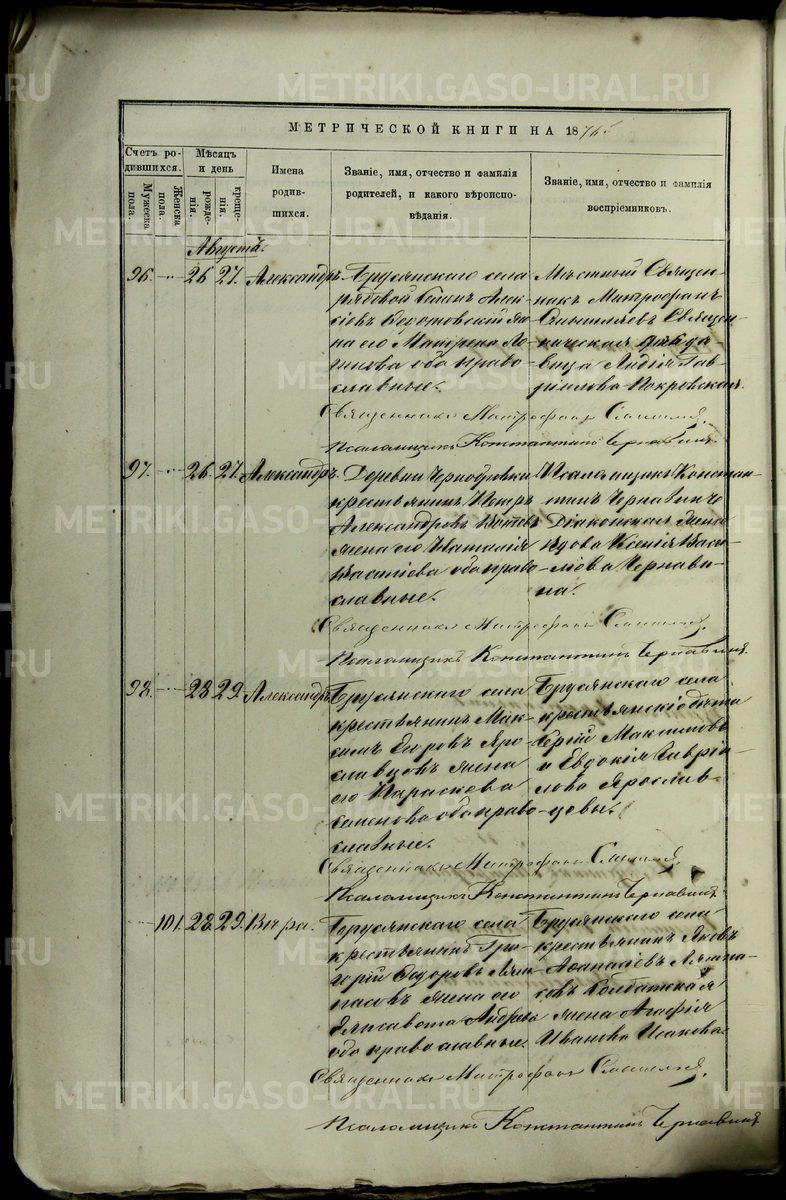 METRIKI.GASO-URAL.RU
МЕТРИЧЕСКОЙ КНИГИ НА 187
Счетъ ро-
дившихся.
Мужеска пола.
Женска пола.
Мѣсяцъ
и день
рожде-
нія.
креще-
нія.
Имена
родив-
шихся.
Званіе, имя, отчество и фамилія
родителей, и какого вѣроиспо-
вѣданія.
Званіе, имя, отчество и фамилія
воспріемниковъ.
Августъ.
96. 26 27. Александръ.
Брусянскаго села
рядовой Алек-
сіевъ же-
на его Матрона Ло-
гинова оба право-
славные.
Мѣстный Священ-
никъ Митрофанъ
Священ-
ническая
вица Лидія Гав-
ріилова Покровская.
Священникъ Митрофанъ
Псаломщикъ Константинъ Чернавинъ.
97. 26 27. Александръ.
Деревни
крестьянинъ Петръ
Александровъ
жена его Наталія
Васильева оба право-
славные.
Псаломщикъ Констан-
тинъ Чернавинъ
Діаконская жена
Вдова Ксенія Васи-
ліева Чернави-
на.
Священникъ Митрофанъ
Псаломщикъ Константинъ Чернавинъ.
98. 28 29. Александръ.
Брусянскаго села
крестьянинъ Мак-
симъ Егоровъ Яро-
славцовъ жена
его Параскова
Семенова оба право-
славные.
Брусянскаго села
крестьянскіе дѣти
Сергій Максимовъ
и Евдокія Гаврі-
лова Ярослав-
цовы.
Священникъ Митрофанъ
Псаломщикъ Константинъ Чернавинъ
101. 28. 29. Вѣра.
Брусянскаго села
крестьянинъ Гри-
горій Ѳедоровъ Ляп-
жена его
Елисавета Андреева
оба православные.
Брусянскаго села
крестьянинъ Яковъ
Аѳанасіевъ
жена Агафія
Иванова Исакова.
Священникъ Митрофанъ
Псаломщикъ Константинъ Чернавинъ